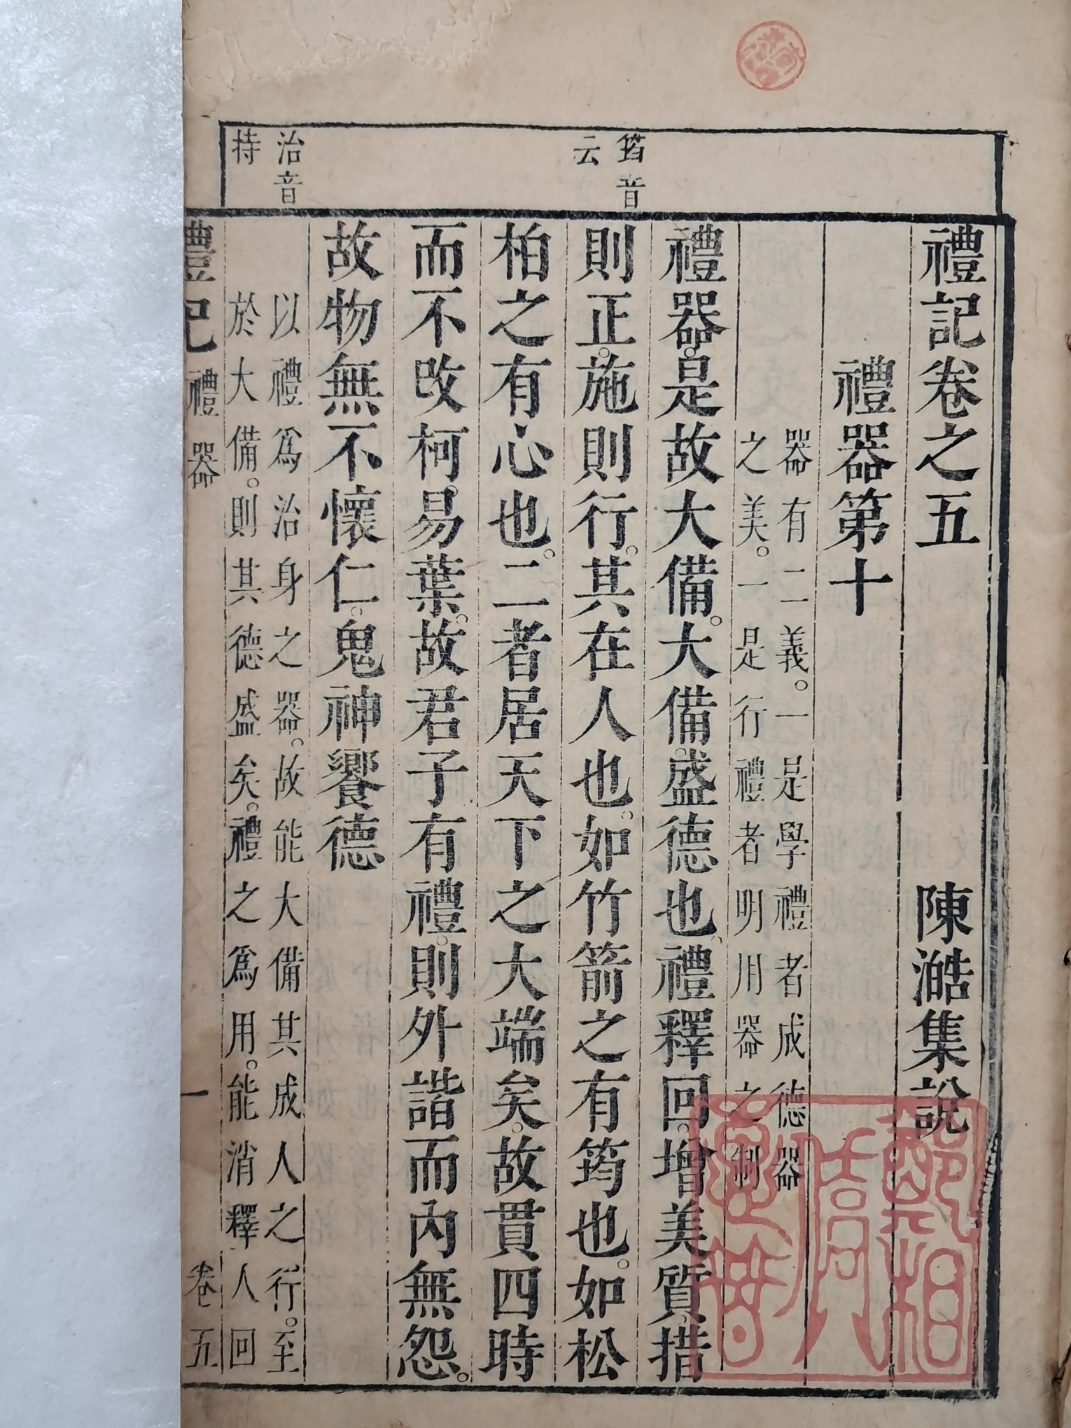 禮記卷之五 陳澔集說
禮器第十
器有二義。一是學禮者成德器
之美。一是行禮者明用器之制
禮器。是故大備。大備。盛德也。禮釋回。增美質。措
則正。施則行。其在人也。如竹箭之有筠也。如松
柏之有心也。二者居天下之大端矣。故貫四時
而不改柯易葉。故君子有禮。則外諧而內無怨。
故物無不懷仁。鬼神饗德
以禮爲治身之器。故能大備其成人之行。至
於大備。則其德盛矣。禮之爲用。能消釋人回
筠音
云
治音
持
禮記 禮器 一 卷五